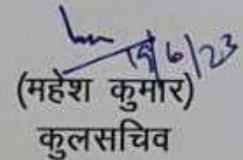 19/6/23
(महेश कुमार)
कुलसचिव